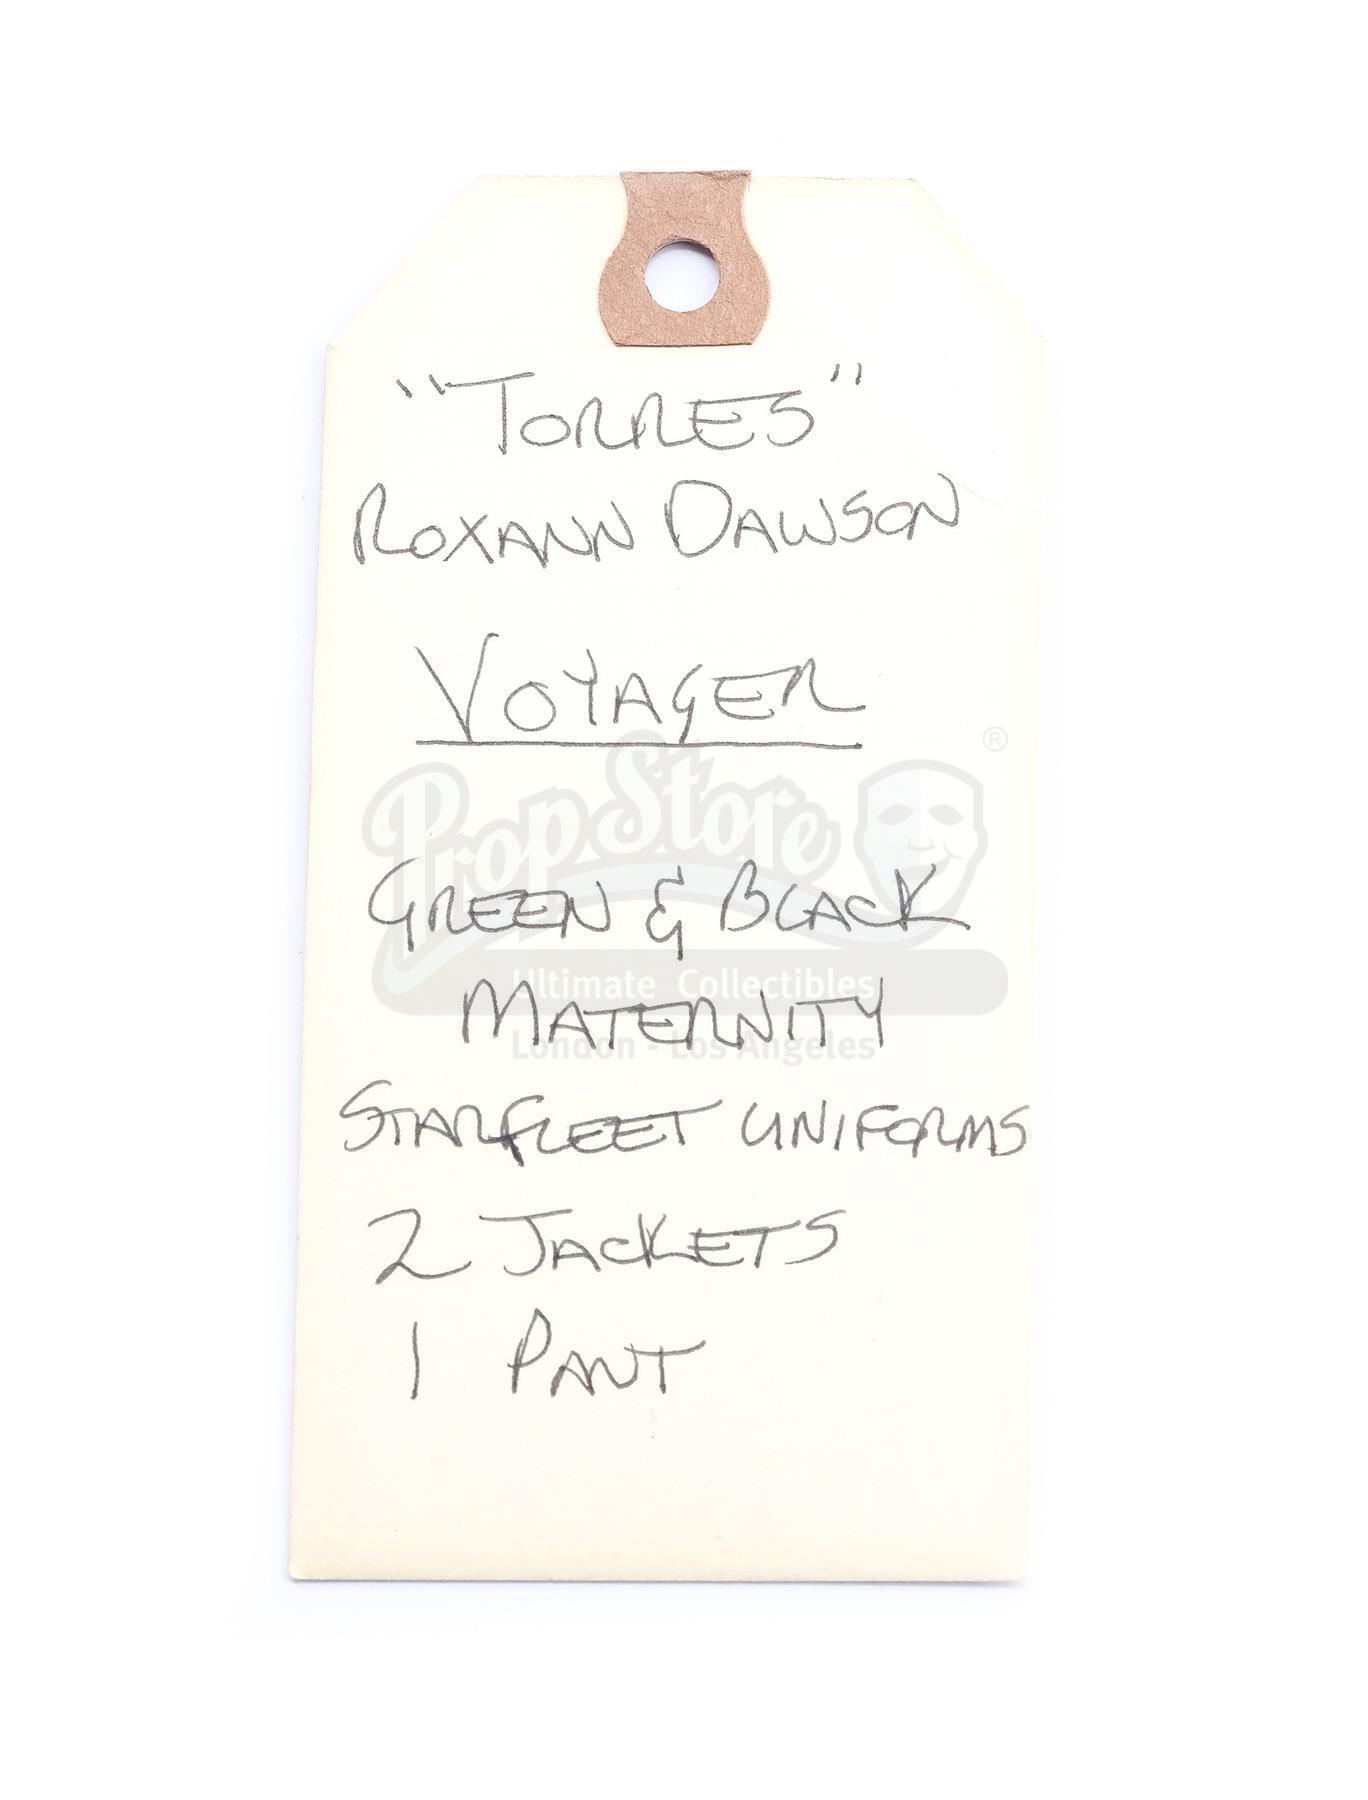 "TORRES"
ROXANN DAWSON
VOYAGER
®
PropStore
GREEN & BLACK
Ultimate Collectibles
MATERNITY
London - Los Angeles
STARFLEET UNIFORMS
2 JACKETS
1 PANT